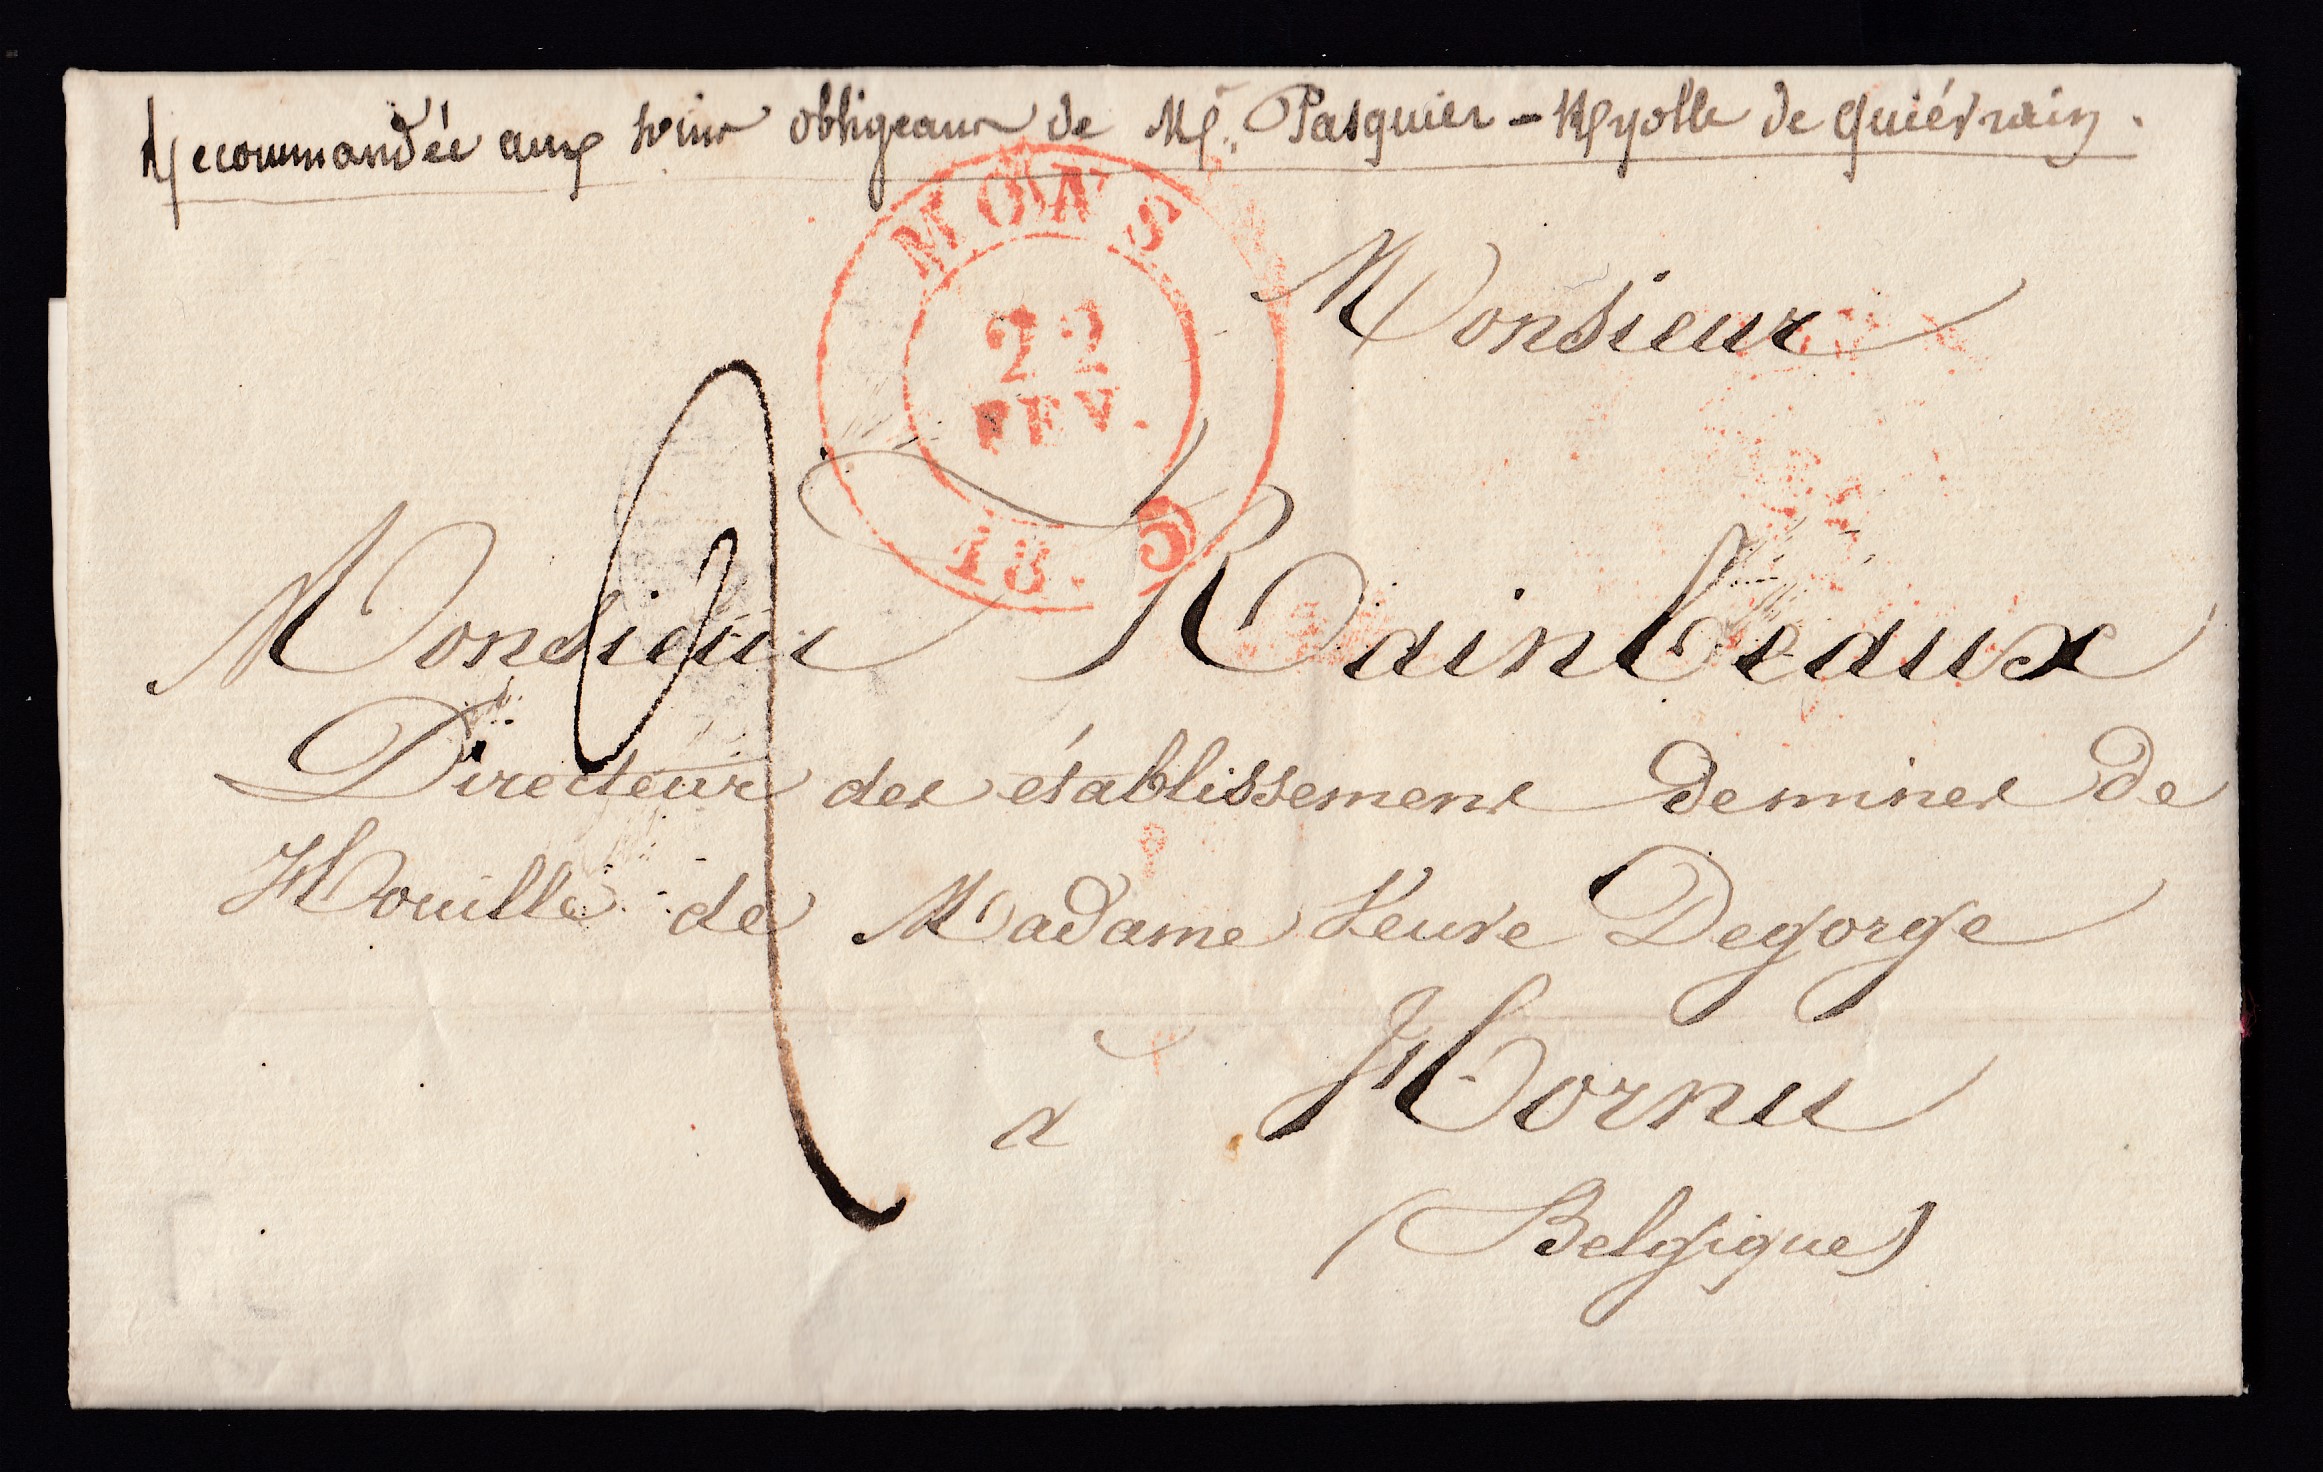 Recommandée aux soins obligeans de Mr. Pasquier - Ryolle de Quiévrain.
MONS
22
FEV.
18. 5
Monsieur
Monsieur Rainbeaux
Directeur des établissemens de mines de
Houille de Madame Veuve Degorge
a Hornu
(Belgique)